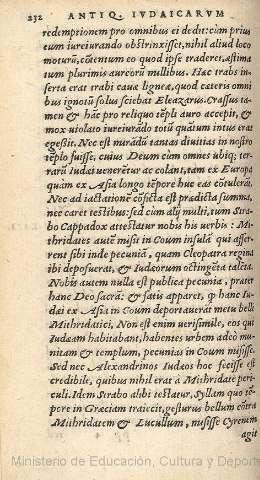 232 ANTIQ. IVDAICARVM
redemptionem pro omnibus ei dedit: cùm prius
eum iureiurando obstrinxisset, nihil aliud loco
moturũ, cõtentum eo quod ipse traderet, æstima
tum plurimis aureorũ millibus. Hæc trabs in-
serta erat trabi cauæ ligneæ, quod cæteris omni
bus ignotũ solus sciebat Eleazarus. Crassus ta-
men & hãc pro reliquo tẽpli auro accepit, &
mox uiolato iureiurãdo totũ quãtum intus erat
egessit. Nec est mirãdũ tantas diuitias in nostro
tẽplo fuisse, cuius Deum cùm omnes ubiq; ter-
rarũ Iudæi uenerẽtur ac colant, tam ex Europa
quàm ex Asia longo tẽpore huc eas cõtulerãt.
Nec ad iactatione cõficta est prædicta summa,
nec caret testibus: sed cùm alij multi, tum Stra
bo Cappadox attestatur nobis his uerbis : Mi-
thridates autẽ misit in Coum insulã qui affer-
rent sibi inde pecuniã, quam Cleopatra regina
ibi deposuerat, & Iudæorum octingẽta talẽta.
Nobis autem nulla est publica pecunia, præter
hanc Deo sacrã: & satis apparet, φ hanc Iu-
dæi ex Asia in Coum deportauerãt metu belli
Mithridatici, Non est enim uerisimile, eos qui
Iudæam habitabant, habentes urbem adeò mu-
nitam & templum, pecunias in Coum misisse.
Sed nec Alexandrinos Iudæos hoc fecisse est
credibile, quibus nihil erat à Mithridate peri-
culi. Idem Strabo alibi testatur, Syllam quo tẽ-
pore in Græciam traiecit, gesturus bellum cõtra
Mithridatem & Lucullum, misisse Cyrenem
agit
Ministerio de Educación, Cultura y Deporte